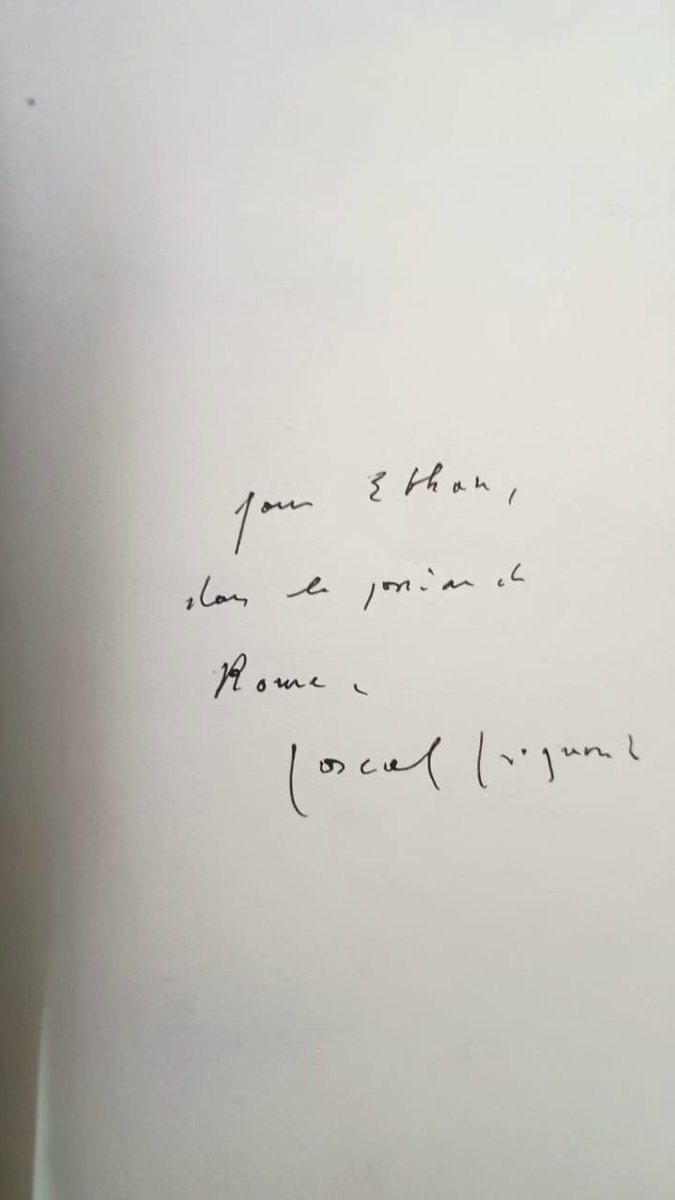 pour Ethan,
dans la passion de
Rome.
Pascal Quignard